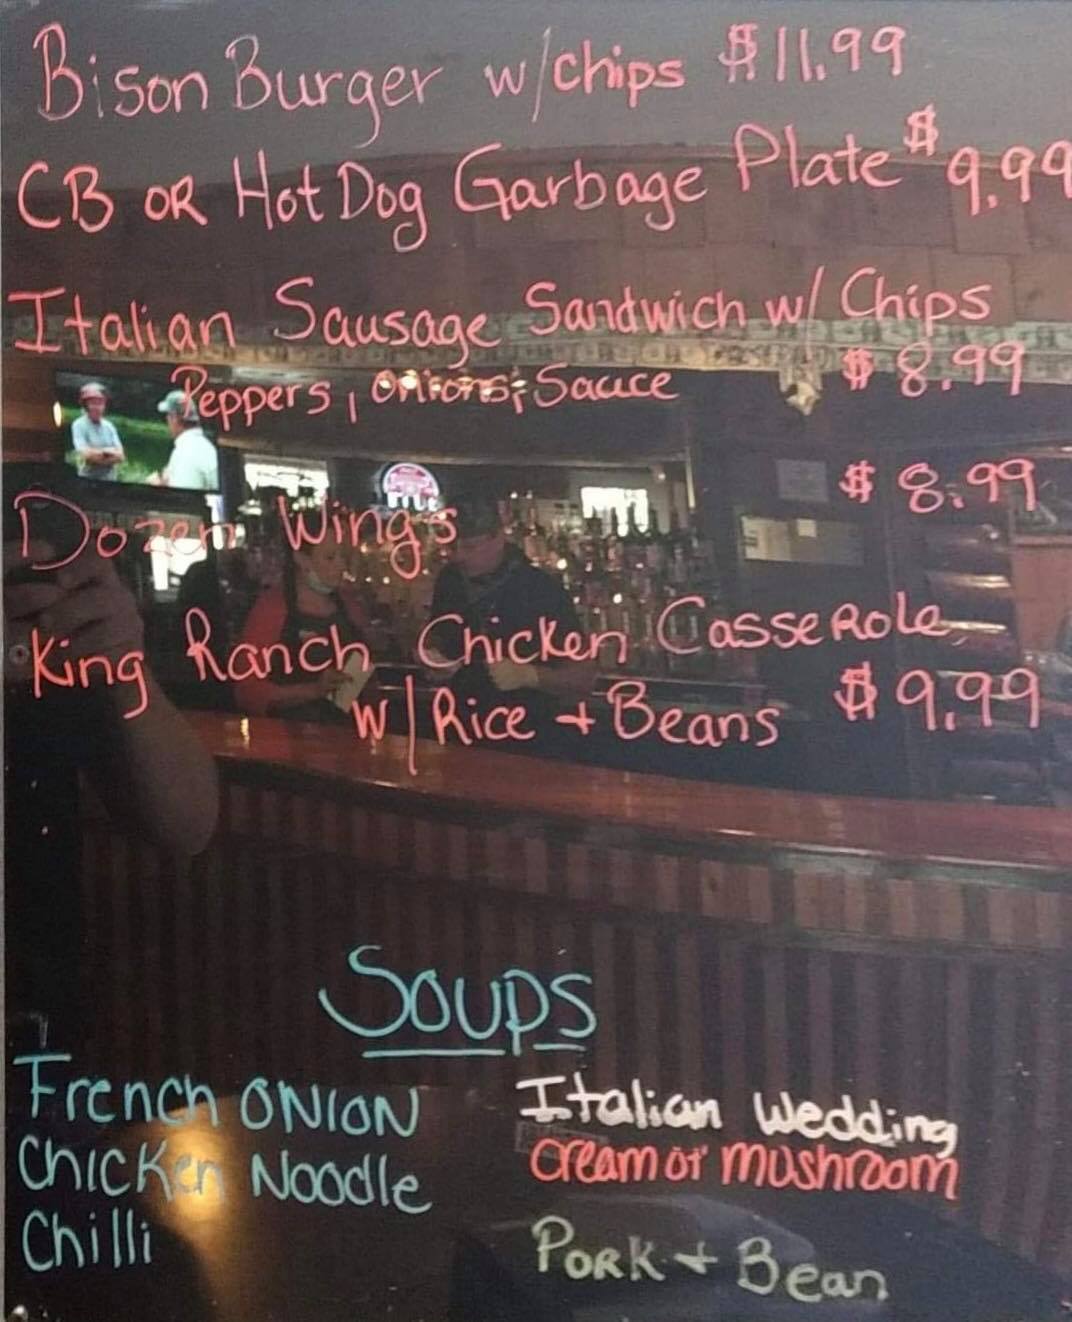 Bison Burger w/chips $11.99
CB OR Hot Dog Garbage Plate $9.99
Italian Sausage Sandwich w/ Chips
Peppers, Onions, Sauce $8.99
Dozen Wings $8.99
King Ranch Chicken Casserole
w/ Rice + Beans $9.99
Soups
French ONION Italian Wedding
Chicken Noodle cream of mushroom
Chilli Pork + Bean